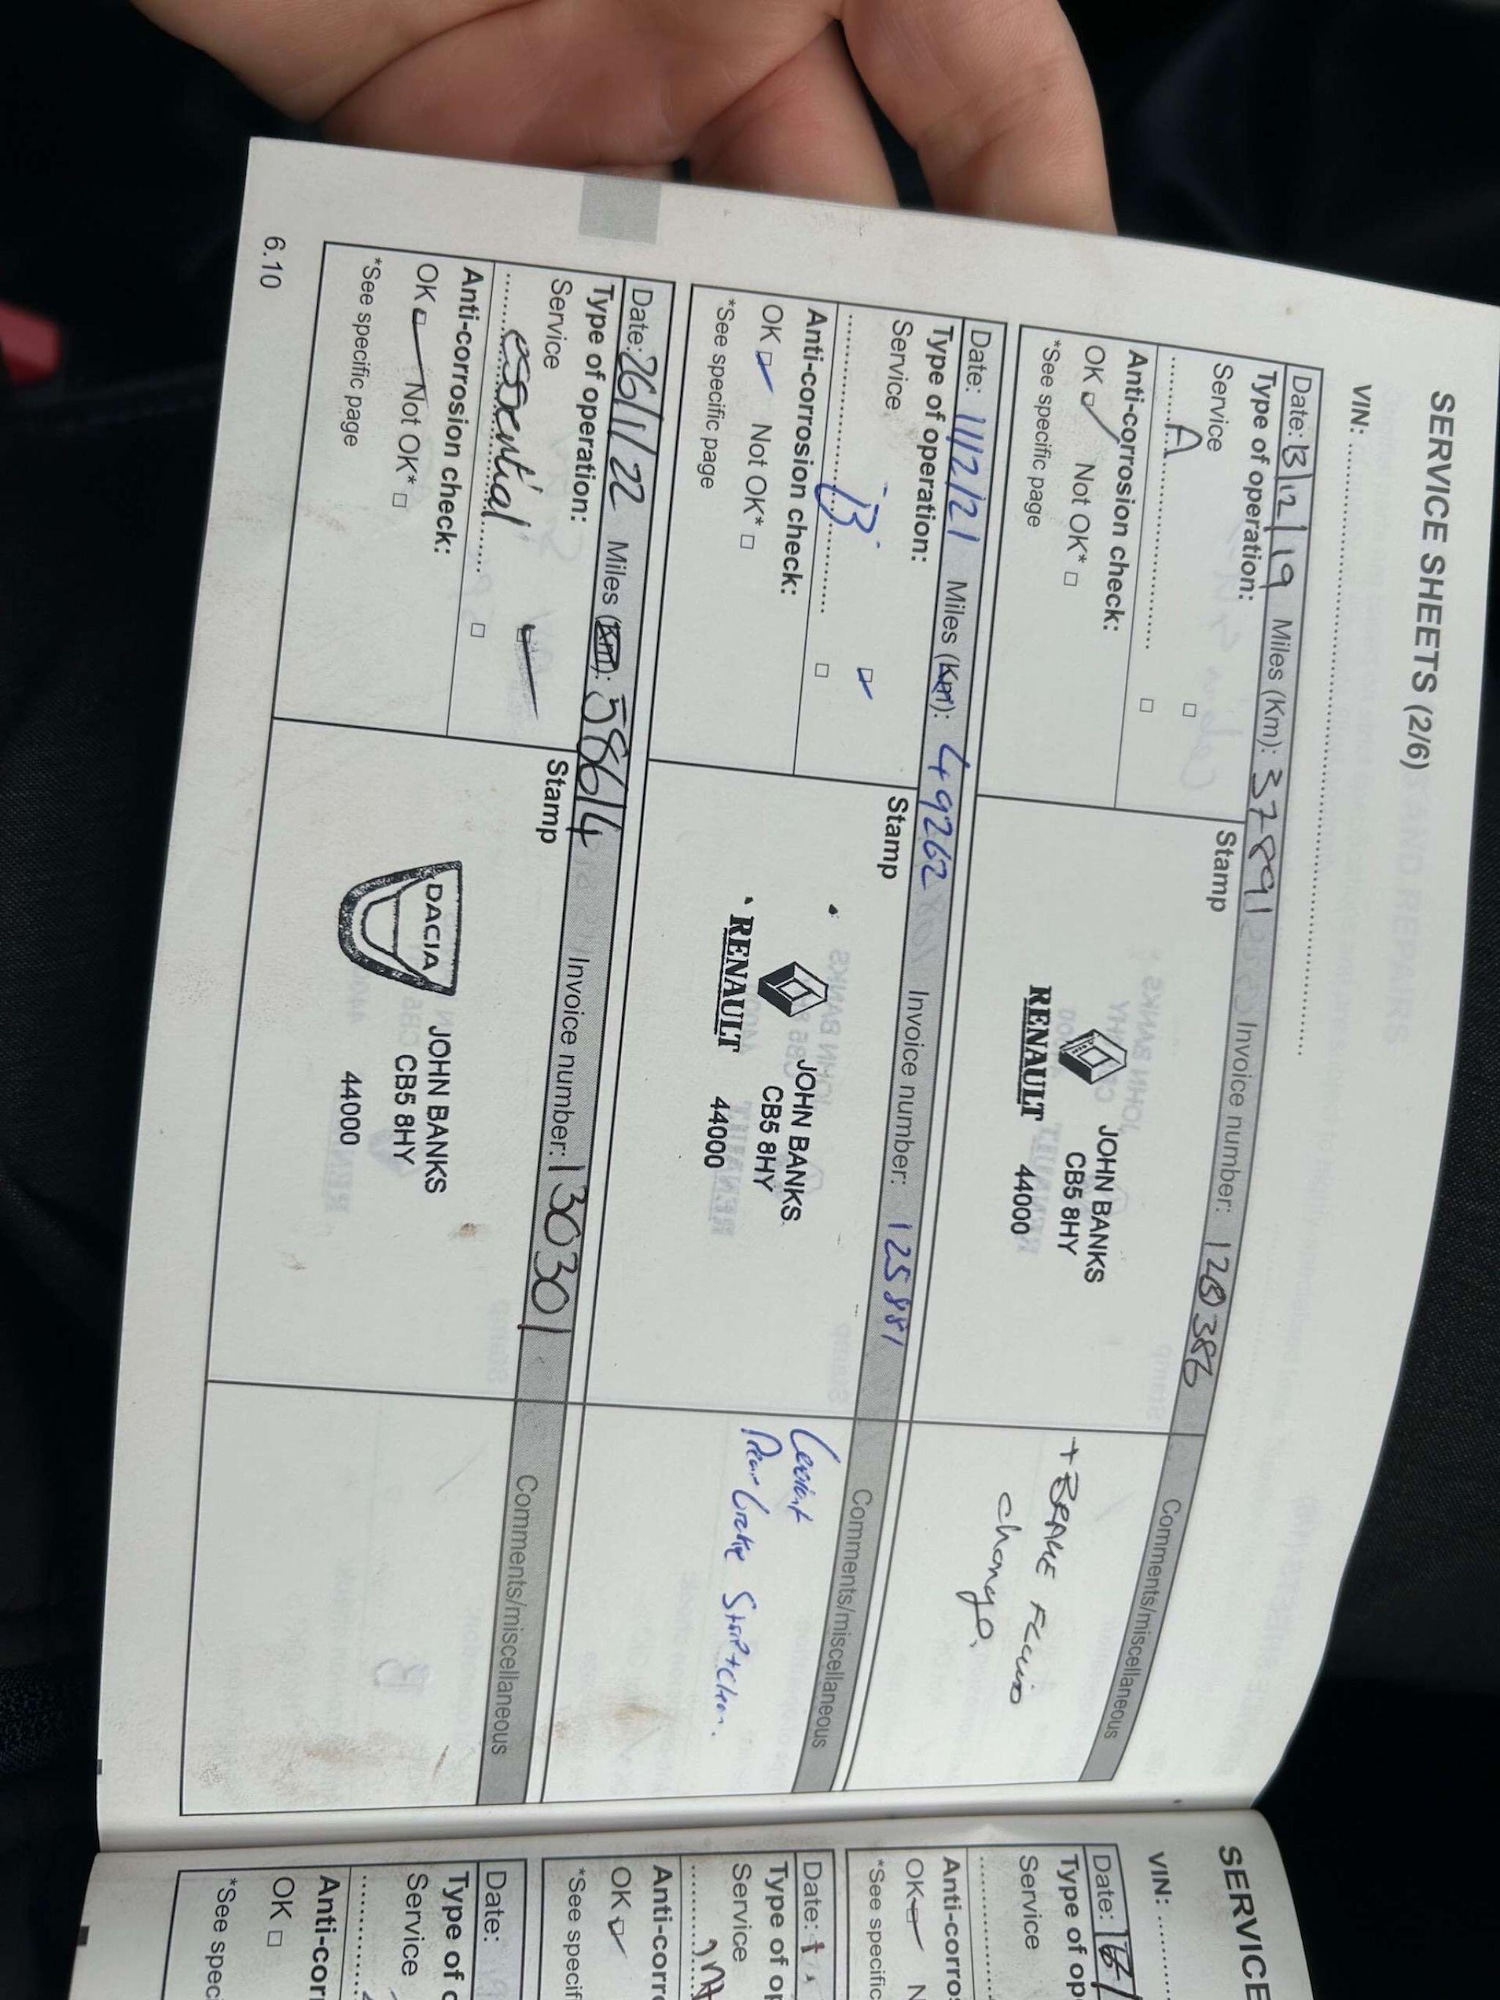 SERVICE SHEETS (2/6)
VIN:
Date: 13/12/19 Miles (Km): 37891 Invoice number: 120386 Comments/miscellaneous
Type of operation:
Service
A
Anti-corrosion check:
OK Not OK*
*See specific page
Stamp
RENAULT
JOHN BANKS
CB5 8HY
44000
+ BRAKE FLUID
change.
Date: 11/2/21 Miles (Km): 49262 Invoice number: 125881 Comments/miscellaneous
Type of operation:
Service
B
Anti-corrosion check:
OK Not OK*
*See specific page
Stamp
RENAULT
JOHN BANKS
CB5 8HY
44000
Rear brake Strip + Clean.
Date: 26/1/22 Miles (Km): 58614 Invoice number: 130301 Comments/miscellaneous
Type of operation:
Service
essential
Anti-corrosion check:
OK Not OK*
*See specific page
Stamp
DACIA
JOHN BANKS
CB5 8HY
44000
6.10
SERVICE
VIN:
Date:
Type of op
Service
Anti-corros
OK N
*See specific
Date:
Type of op
Service
Anti-corr
OK
*See specif
Date:
Type of o
Service
Anti-cor
OK
*See spec